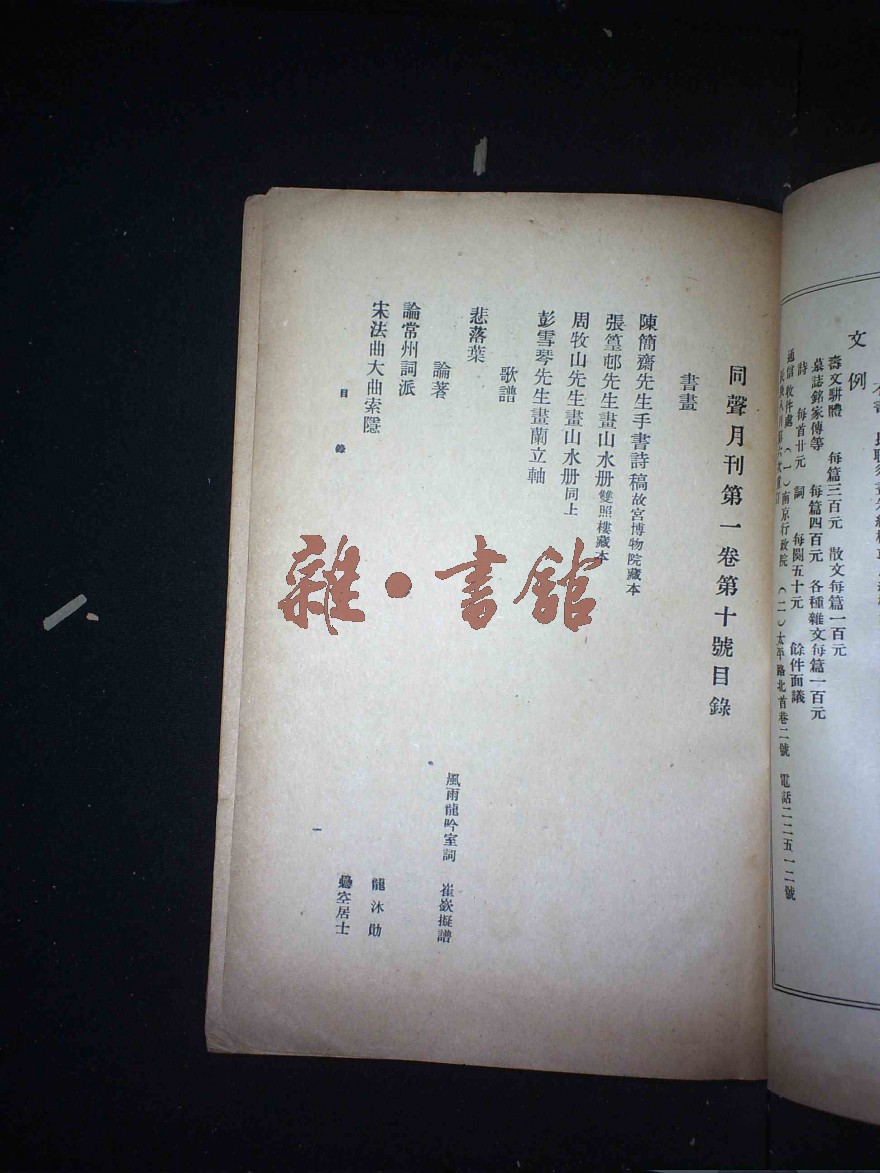 同聲月刊第一卷第十號目錄
書畫
陳簡齋先生手書詩稿故宮博物院藏本
張篁邨先生畫山水册雙照樓藏本
周牧山先生畫山水册同上
彭雪琴先生畫蘭立軸
歌譜
悲落葉 風雨龍吟室詞 崔嶔擬譜
論著
論常州詞派 龍沐勛
宋法曲大曲索隱 空居士
目錄 一
雜·書館
文例
壽文駢體 每篇三百元 散文每篇一百元
墓誌銘家傳等 每篇四百元 各種雜文每篇一百元
詩 每首廿元 詞 每闋五十元 餘件面議
通信收件處 (一)南京行政院 (二)太平路北首巷二號 電話二二五一二號